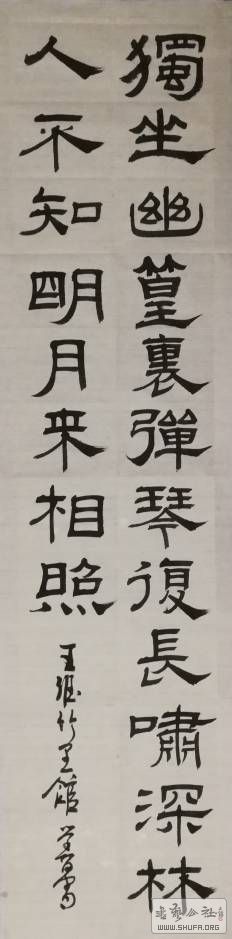 獨坐幽篁裏彈琴復長嘯深林
人不知明月来相照
王維竹里館
WWW.SHUFA.ORG